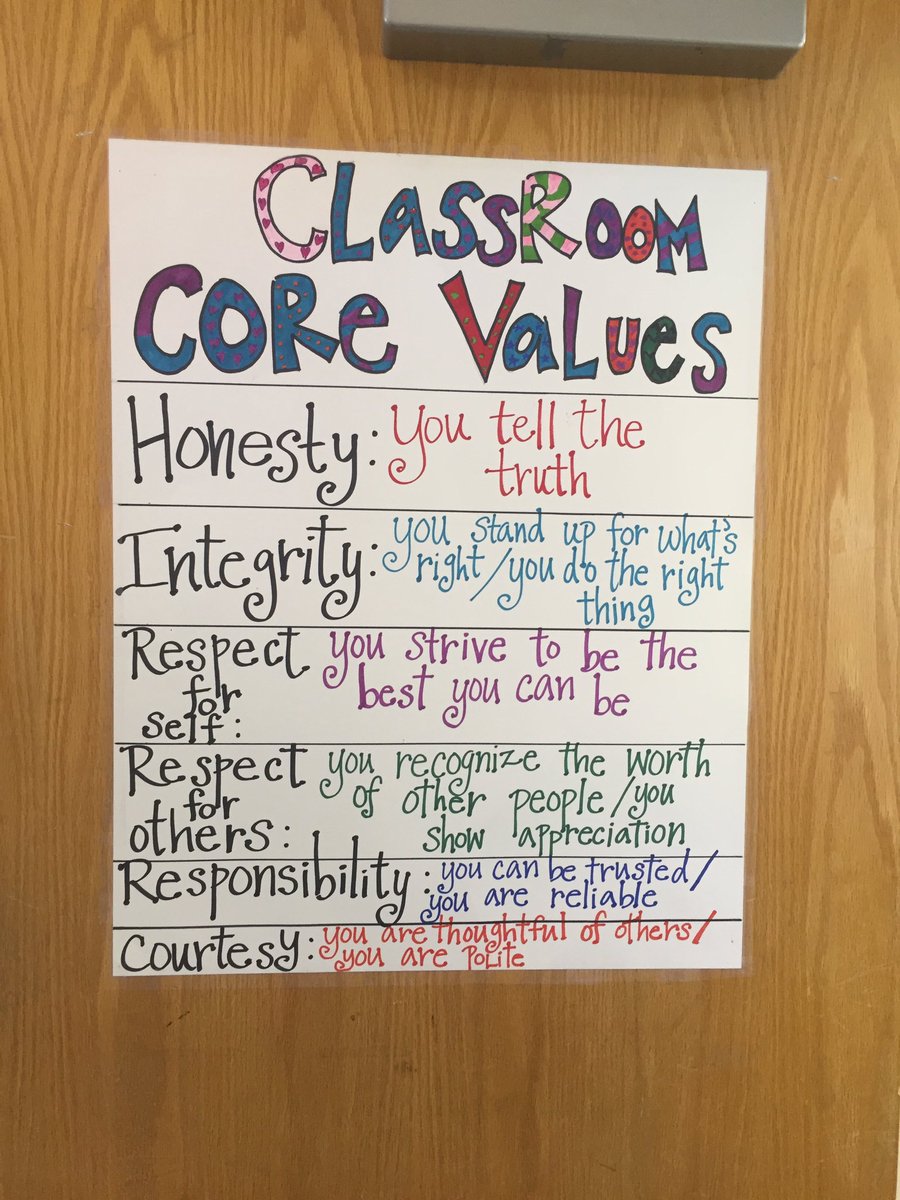 Classroom
Core Values
Honesty: you tell the
truth
Integrity: you stand up for what's
right/you do the right
thing
Respect
for
self:
you strive to be the
best you can be
Respect
for
others:
you recognize the worth
of other people/you
show appreciation
Responsibility: you can be trusted/
you are reliable
Courtesy: you are thoughtful of others/
you are polite